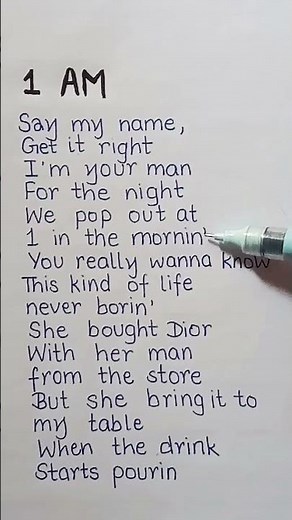 1 AM
Say my name,
Get it right
I'm your man
For the night
We pop out at
1 in the mornin'
You really wanna know
This kind of life
never borin'
She bought Dior
With her man
from the store
But she bring it to
my table
When the drink
Starts pourin